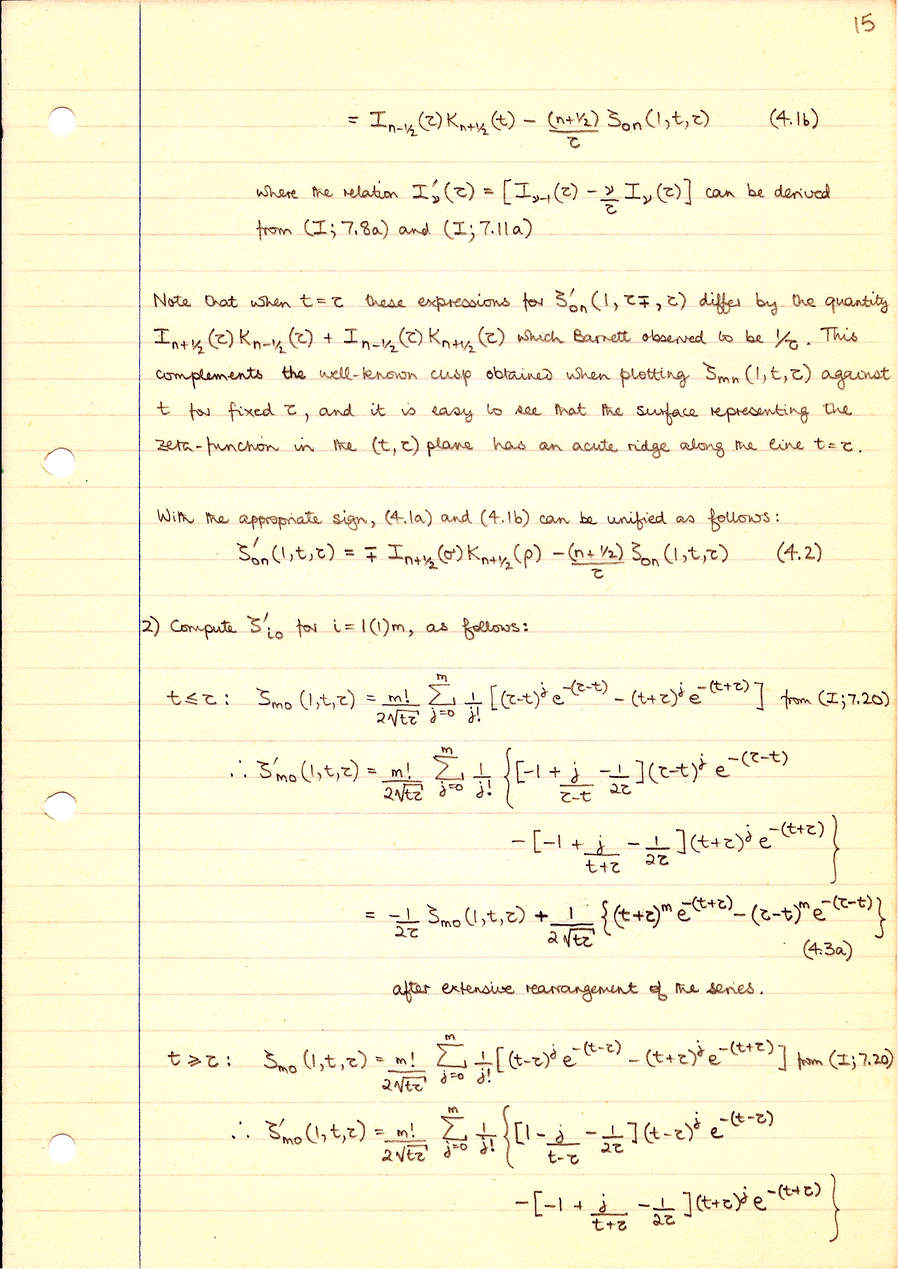 15
= I_{n-½}(τ) K_{n+½}(t) − (n+½)/τ ζ_{on}(1,t,τ) (4.1b)
where the relation I'_ν(τ) = [I_{ν-1}(τ) − ν/τ I_ν(τ)] can be derived
from (I; 7.8a) and (I; 7.11a)
Note that when t = τ these expressions for ζ'_{on}(1, τ∓, τ) differ by the quantity
I_{n+½}(τ) K_{n-½}(τ) + I_{n-½}(τ) K_{n+½}(τ) which Barnett observed to be 1/τ. This
complements the well-known cusp obtained when plotting ζ_{mn}(1,t,τ) against
t for fixed τ, and it is easy to see that the surface representing the
zeta-function in the (t,τ) plane has an acute ridge along the line t=τ.
With the appropriate sign, (4.1a) and (4.1b) can be unified as follows:
ζ'_{on}(1,t,τ) = ∓ I_{n+½}(σ) K_{n+½}(ρ) − (n+½)/τ ζ_{on}(1,t,τ) (4.2)
2) Compute ζ'_{io} for i = 1(1)m, as follows:
t ≤ τ : ζ_{mo}(1,t,τ) = m!/(2√tτ) Σ_{j=0}^{m} 1/j! [(τ-t)^j e^{-(τ-t)} − (t+τ)^j e^{-(t+τ)}] from (I; 7.20)
∴ ζ'_{mo}(1,t,τ) = m!/(2√tτ) Σ_{j=0}^{m} 1/j! {[-1 + j/(τ-t) − 1/(2τ)](τ-t)^j e^{-(τ-t)}
− [-1 + j/(t+τ) − 1/(2τ)](t+τ)^j e^{-(t+τ)}}
= -1/(2τ) ζ_{mo}(1,t,τ) + 1/(2√tτ) {(t+τ)^m e^{-(t+τ)} − (τ-t)^m e^{-(τ-t)}}
(4.3a)
after extensive rearrangement of the series.
t ≥ τ : ζ_{mo}(1,t,τ) = m!/(2√tτ) Σ_{j=0}^{m} 1/j! [(t-τ)^j e^{-(t-τ)} − (t+τ)^j e^{-(t+τ)}] from (I; 7.20)
∴ ζ'_{mo}(1,t,τ) = m!/(2√tτ) Σ_{j=0}^{m} 1/j! {[1 − j/(t-τ) − 1/(2τ)](t-τ)^j e^{-(t-τ)}
− [-1 + j/(t+τ) − 1/(2τ)](t+τ)^j e^{-(t+τ)}}